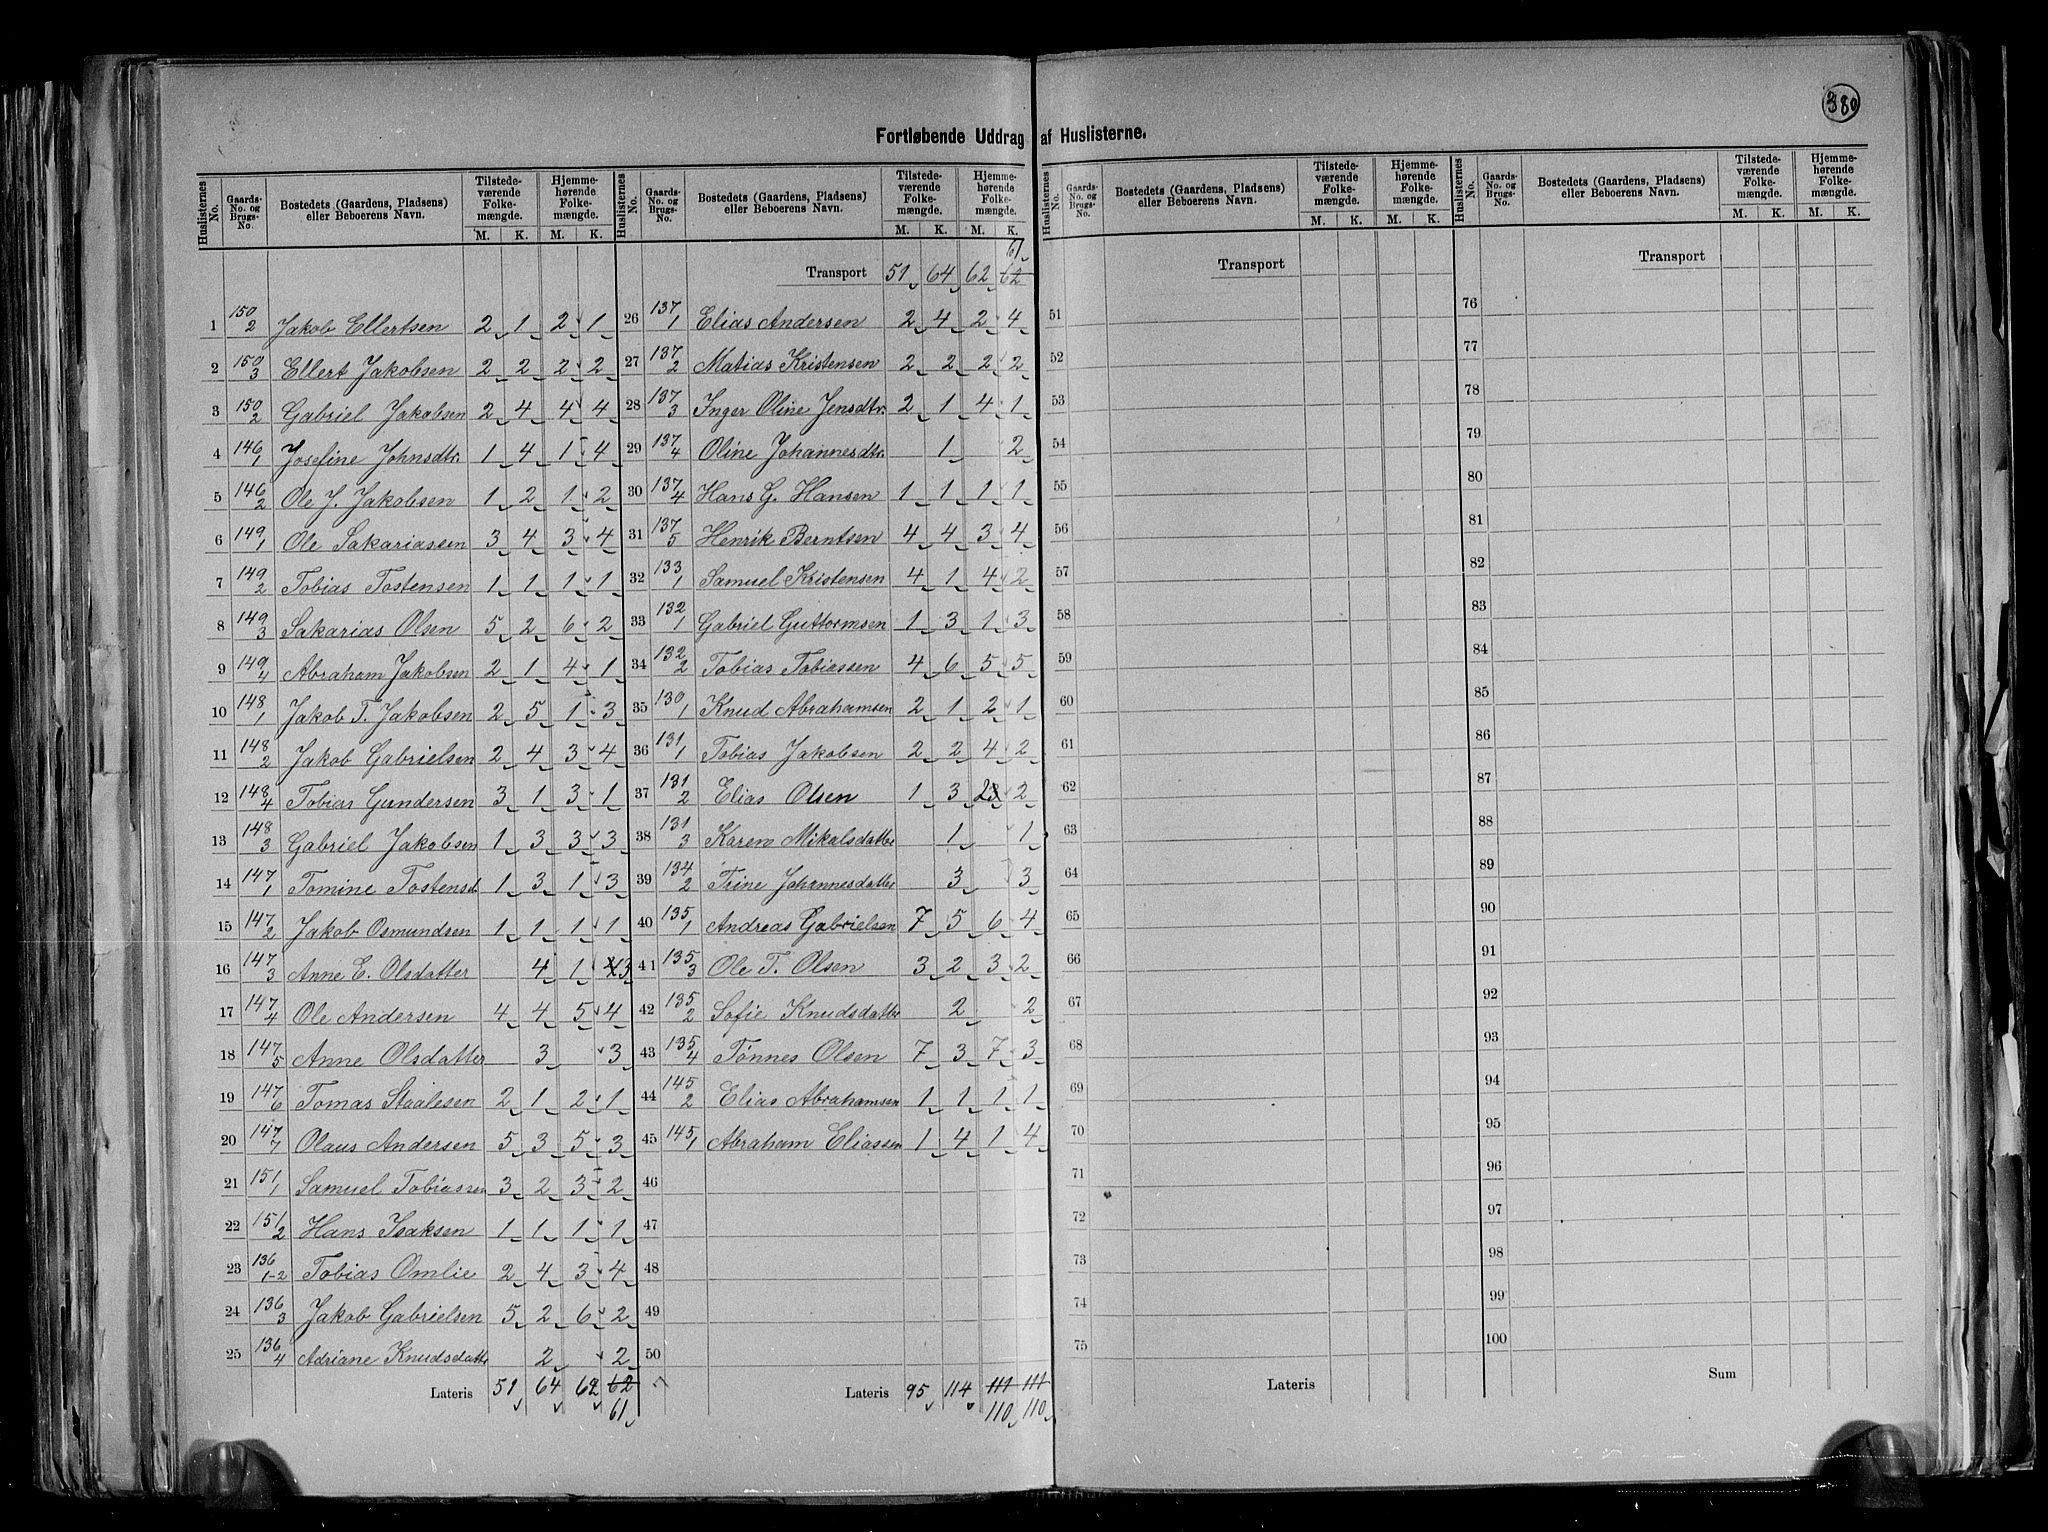 380
Fortløbende Uddrag af Huslisterne.
Huslisternes No. Gaards-No. og Brugs-No. Bostedets (Gaardens, Pladsens) eller Beboerens Navn. Tilstedeværende Folkemængde. M. K. Hjemmehørende Folkemængde. M. K.
1 150/2 Jakob Ellertsen 2 1 2 1
2 150/3 Ellert Jakobsen 2 2 2 2
3 150/2 Gabriel Jakobsen 2 4 4 4
4 146/1 Josefine Johnsdtr. 1 4 1 4
5 146/2 Ole J. Jakobsen 1 2 1 2
6 149/1 Ole Sakariassen 3 4 3 4
7 149/2 Tobias Tostensen 1 1 1 1
8 149/3 Sakarias Olsen 5 2 6 2
9 149/4 Abraham Jakobsen 2 1 4 1
10 148/1 Jakob T. Jakobsen 2 5 1 3
11 148/2 Jakob Gabrielsen 2 4 3 4
12 148/4 Tobias Gundersen 3 1 3 1
13 148/3 Gabriel Jakobsen 1 3 3 3
14 147/1 Tomine Tostensd 1 3 1 3
15 147/2 Jakob Osmundsen 1 1 1 1
16 147/3 Anne E. Olsdatter 4 1 4 3
17 147/4 Ole Andersen 4 4 5 4
18 147/5 Anne Olsdatter 3 3
19 147/6 Tomas Staalesen 2 1 2 1
20 147/7 Olaus Andersen 5 3 5 3
21 151/1 Samuel Tobiassen 3 2 3 2
22 151/2 Hans Isaksen 1 1 1 1
23 136/1-2 Tobias Omlie 2 4 3 4
24 136/3 Jakob Gabrielsen 5 2 6 2
25 136/4 Adriane Knudsdatte 2 2
Lateris 51 64 62 62
61
Huslisternes No. Gaards-No. og Brugs-No. Bostedets (Gaardens, Pladsens) eller Beboerens Navn. Tilstedeværende Folkemængde. M. K. Hjemmehørende Folkemængde. M. K.
61
Transport 51 64 62 62
26 137/1 Elias Andersen 2 4 2 4
27 137/2 Matias Kristensen 2 2 2 2
28 137/3 Inger Oline Jensdtr. 2 1 4 1
29 137/4 Oline Johannesdtr. 1 2
30 137/4 Hans G. Hansen 1 1 1 1
31 137/5 Henrik Berntsen 4 4 3 4
32 133/1 Samuel Kristensen 4 1 4 2
33 132/1 Gabriel Guttormsen 1 3 1 3
34 132/2 Tobias Tobiassen 4 6 5 5
35 130/1 Knud Abrahamsen 2 1 2 1
36 131/1 Tobias Jakobsen 2 2 4 2
37 131/2 Elias Olsen 1 3 2 3 2
38 131/3 Karen Mikalsdatte 1 1
39 134/2 Trine Johannesdatte 3 3
40 135/1 Andreas Gabrielsen 7 5 6 4
41 135/3 Ole T. Olsen 3 2 3 2
42 135/2 Sofie Knudsdatte 2 2
43 135/4 Tønnes Olsen 7 3 7 3
44 145/2 Elias Abrahamsen 1 1 1 1
45 145/1 Abraham Eliassen 1 4 1 4
46
47
48
49
50
Lateris 95 114 111 111
110 110
Huslisternes No. Gaards-No. og Brugs-No. Bostedets (Gaardens, Pladsens) eller Beboerens Navn. Tilstedeværende Folkemængde. M. K. Hjemmehørende Folkemængde. M. K.
Transport
51
52
53
54
55
56
57
58
59
60
61
62
63
64
65
66
67
68
69
70
71
72
73
74
75
Lateris
Huslisternes No. Gaards-No. og Brugs-No. Bostedets (Gaardens, Pladsens) eller Beboerens Navn. Tilstedeværende Folkemængde. M. K. Hjemmehørende Folkemængde. M. K.
Transport
76
77
78
79
80
81
82
83
84
85
86
87
88
89
90
91
92
93
94
95
96
97
98
99
100
Sum